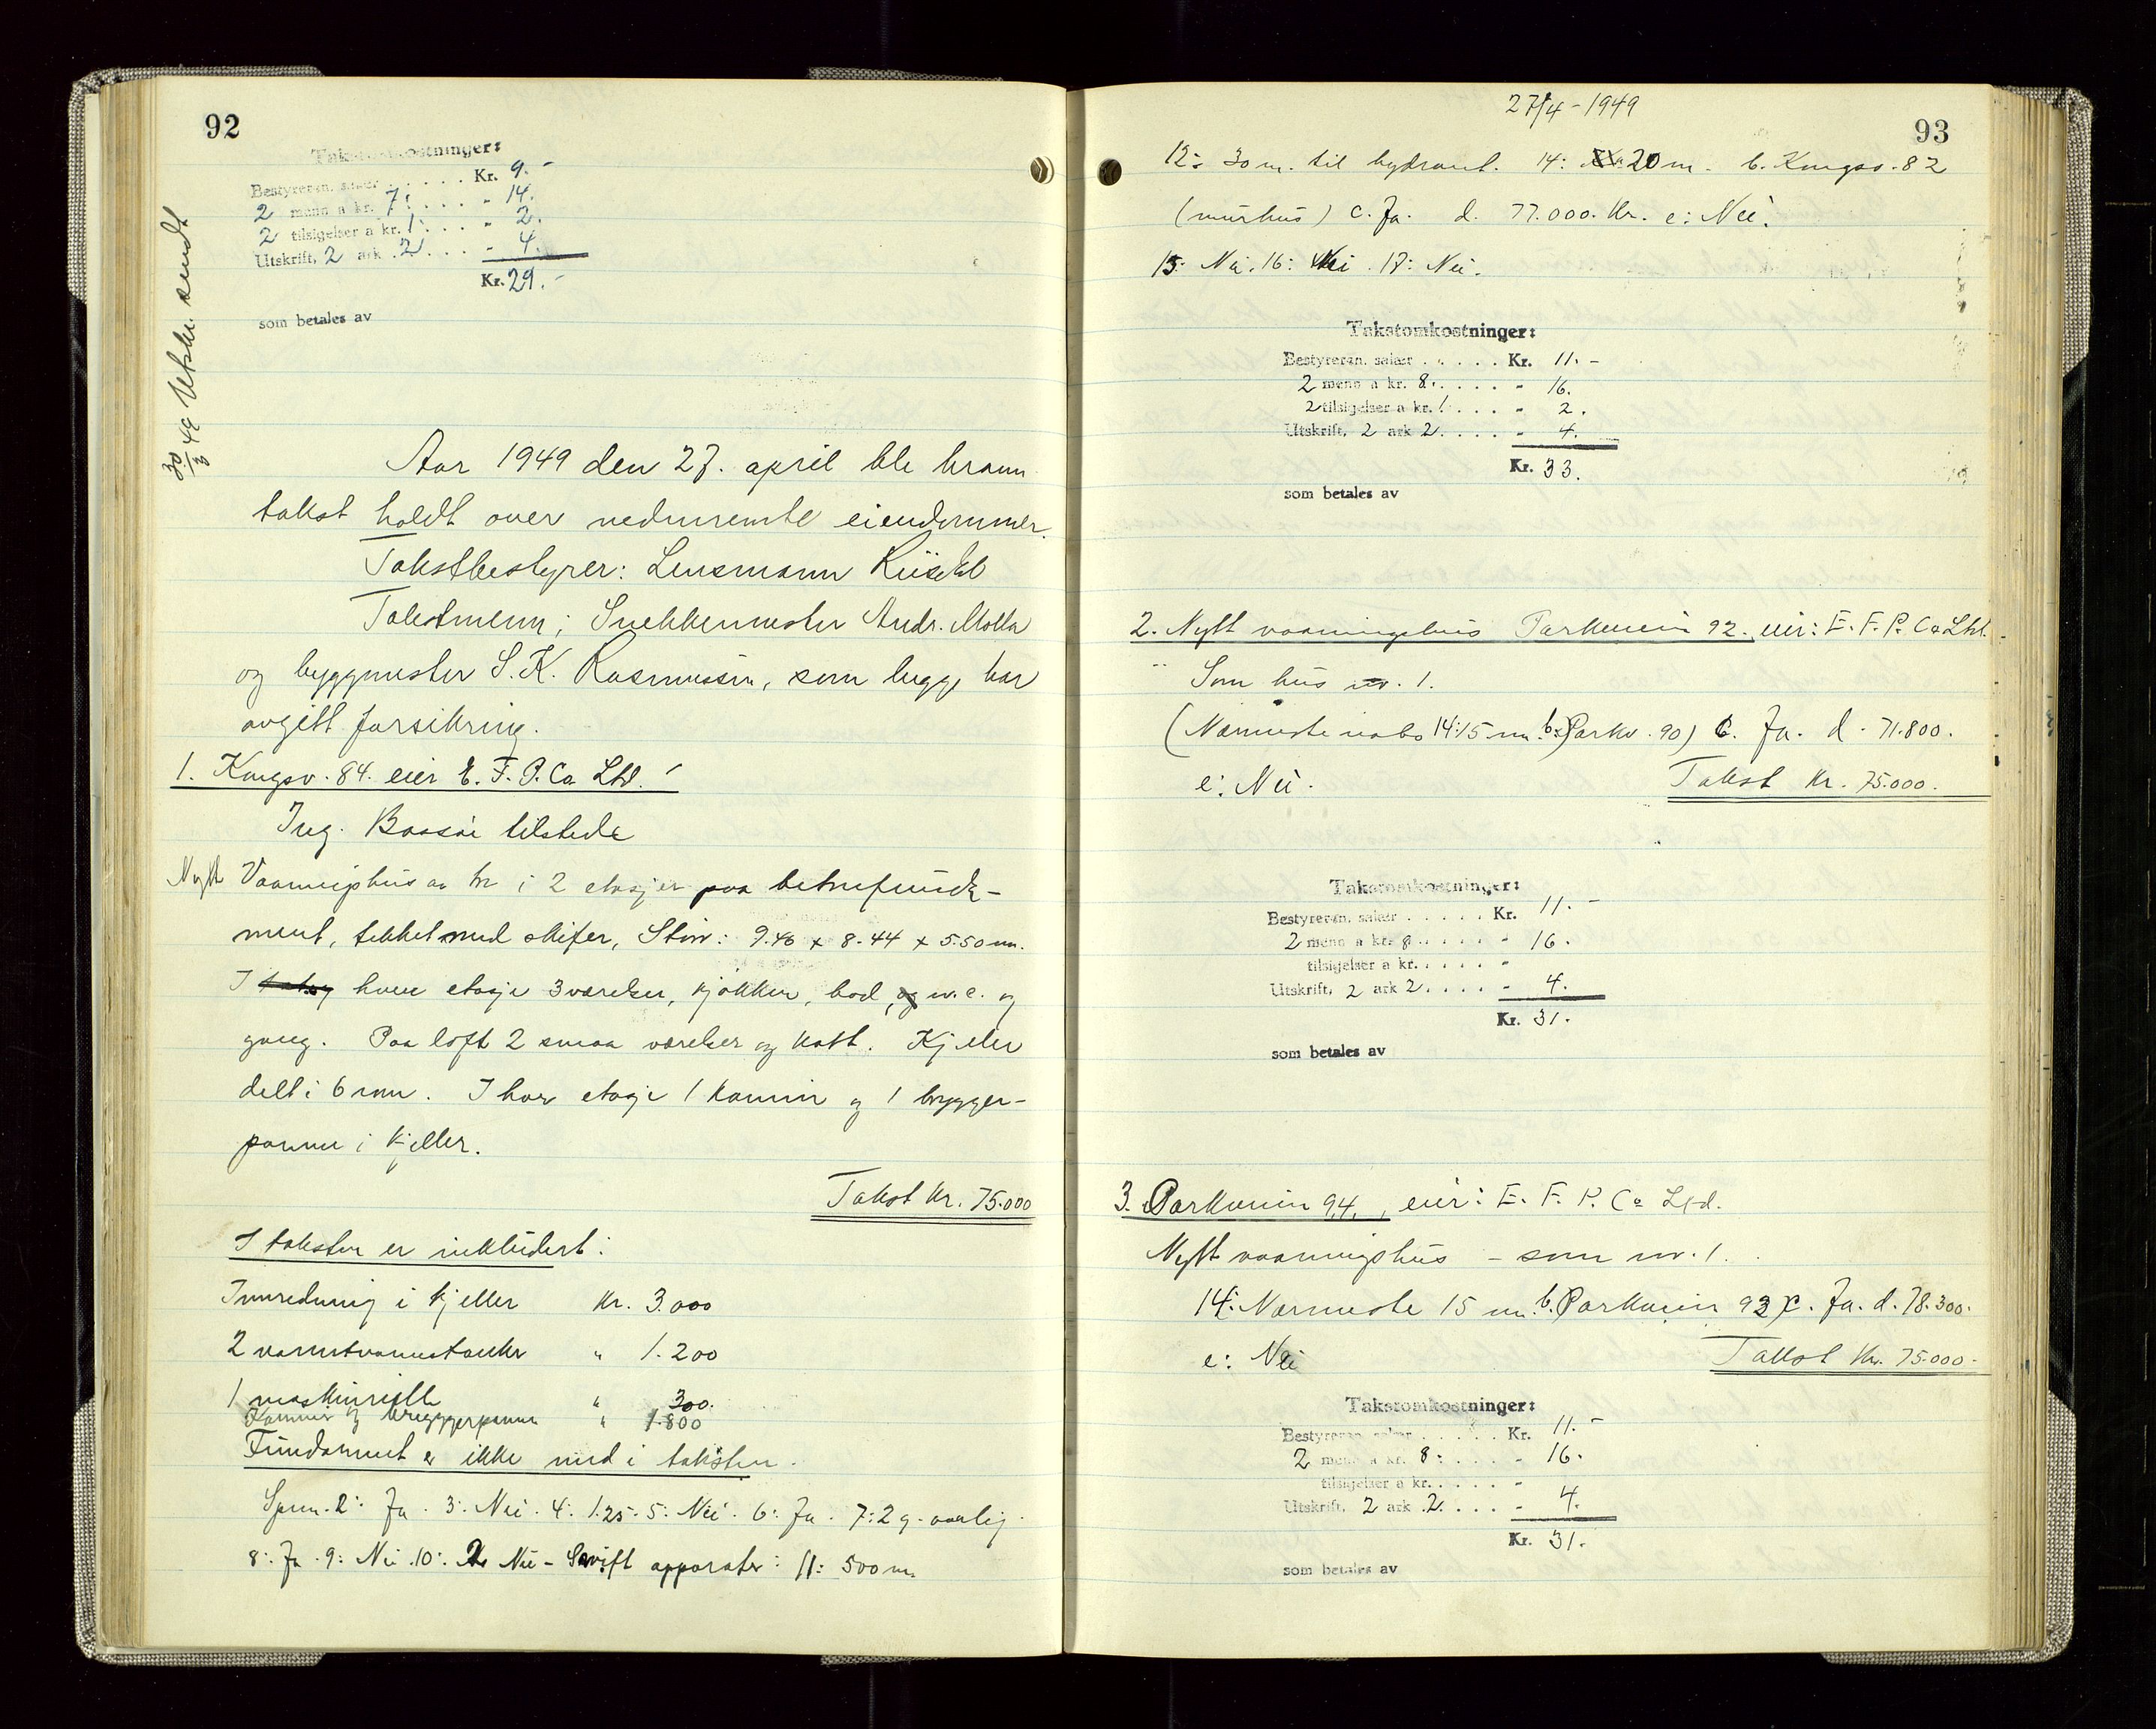 92
Takstomkostninger:
Bestyreren, salær . . . . . Kr. 9.-
2 menn a kr. 7: . . . . - 14.
2 tilsigelser a kr. 1. . . . - 2.
Utskrift, 2 ark 2 . . . - 4.
Kr. 29.-
som betales av
30/3 49 Utskr. sendt
Aar 1949 den 27. april ble brann
takst holdt over nedunevnte eiendommer.
Takstbestyrer: Lensmann
Takstmenn; Snekkermester Andr. Molla
og byggmester S. K. Rasmussen, som begge har
avgitt forsikring.
1. Kongsv. 84. eier E. F. P. Co Ltd.
Ing. Bassøe tilstede
Nytt Vaaningshus av tre i 2 etasjer paa betonfunda-
ment, tekket med skifer, Størr: 9.46 x 8.44 x 5.50 m.
I hver etasje 3 værelser, kjøkken, bad, w.c. og
gang. Paa loft 2 smaa værelser og kott. Kjeller
delt i 6 rom. I hver etasje 1 kamin og 1 brygger-
panne i kjeller.
Takst Kr. 75.000
I taksten er inkludert:
Innredning i kjeller Kr. 3.000
2 varmtvannstanker " 1.200
1 maskinrulle " 300.
Kaminer og bryggerpanne " 1.800
Fundament er ikke med i taksten.
Spm. 2: Ja. 3: Nei. 4: 1.25. 5: Nei. 6: Ja. 7: 2 g. aarlig.
8: Ja. 9: Nei. 10: Nei - Swift apparater: 11: 500 m.
27/4-1949
93
12: 30 m. til hydrant. 14: 20 m. b. Kongsv. 82
(murhus) c. Ja. d. 77.000. Kr. e: Nei.
15: Nei. 16: Nei. 17: Nei.
Takstomkostninger:
Bestyreren, salær . . . . . Kr. 11.-
2 menn a kr. 8. . . . . - 16.
2 tilsigelser a kr. 1 . . . . - 2.
Utskrift, 2 ark 2. . . . . - 4.
Kr. 33.
som betales av
2. Nytt vaaningshus Parkveien 92. eier: E. F. P. Co Ltd.
Som hus nr. 1.
(Nærmeste nabo 14: 15 m. b: Parkv. 90) c. Ja. d. 71.800.
e: Nei.
Takst Kr. 75.000.
Takstomkostninger:
Bestyreren, salær . . . . . Kr. 11.-
2 menn a kr. 8 . . . . - 16.
tilsigelser a kr. . . . . -
Utskrift, 2 ark 2. . . . . - 4.
Kr. 31.
som betales av
3. Parkveien 94., eier: E. F. P. Co Ltd.
Nytt vaaningshus - som nr. 1.
14: Nærmeste 15 m. b. Parkveien 92) c. Ja. d. 78.300.
e: Nei
Takst Kr. 75.000.
Takstomkostninger:
Bestyreren, salær . . . . . Kr. 11.-
2 menn a kr. 8: . . . . - 16.
tilsigelser a kr. . . . . -
Utskrift, 2 ark 2. . . . - 4.
Kr. 31.
som betales av